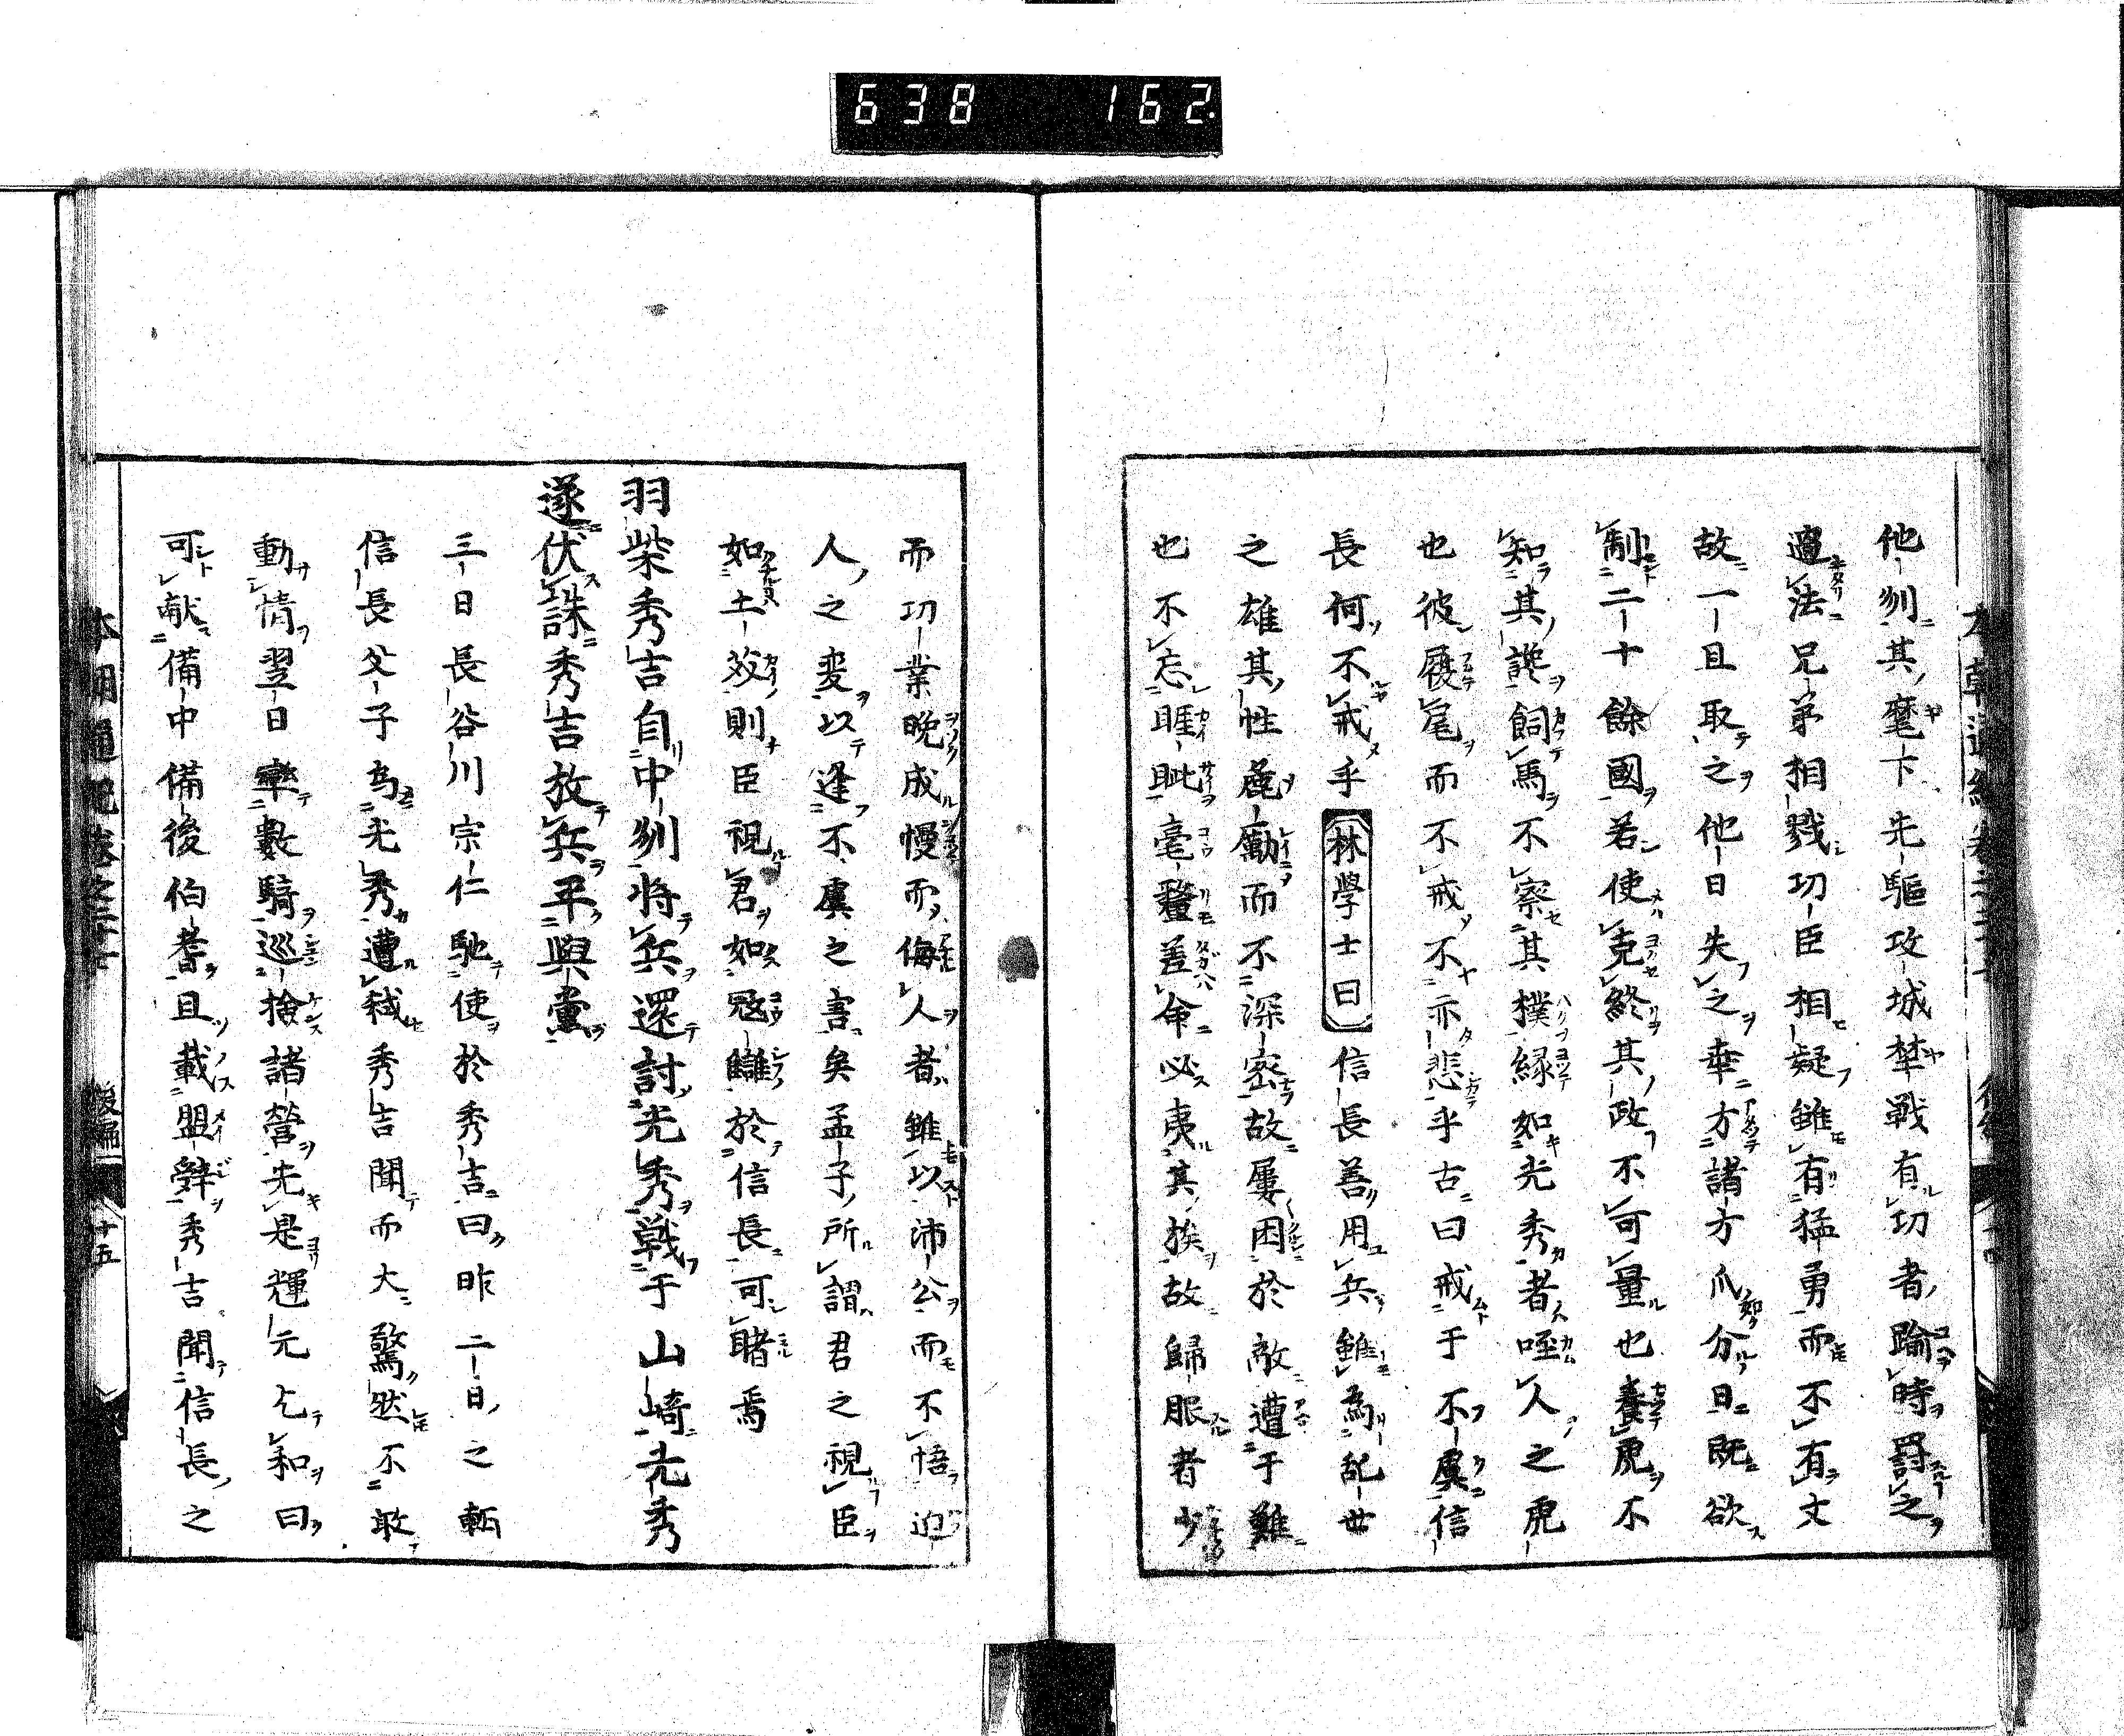 638 162
他州其麾下先驅攻城挊戰有功者踰時罸之
過法兄弟相戮功臣相疑雖有猛勇而不有文
故一旦取之他日失之幸方諸方瓜分日既欲
制二十餘國若使克終其政不可量也養虎不
知其讒飼馬不察其樸緑如光秀者咥人之虎
也彼履尾而不戒不亦悲乎古曰戒于不虞信
長何不戒乎林學士曰信長善用兵雖為乱世
之雄其性麁勵而不深密故屢困於敵遭于難
也不忘睚眦毫釐差命必夷其族故歸服者少
而功業晩成慢而侮人者雖以沛公而不悟迫
人之変以逢不虞之害矣孟子所謂君之視臣
如土芥則臣視君如冦讎於信長可睹焉
羽柴秀吉自中州将兵還討光秀戰于山崎光秀
遂伏誅秀吉放兵平與黨
三日長谷川宗仁馳使於秀吉曰昨二日之
信長父子為光秀遭弑秀吉聞而大驚然不敢
動情翌日率數騎巡撿諸營先是輝元乞和曰
可献備中備後伯耆且載盟辤秀吉聞信長之
本朝通紀卷之二十 後編 十五